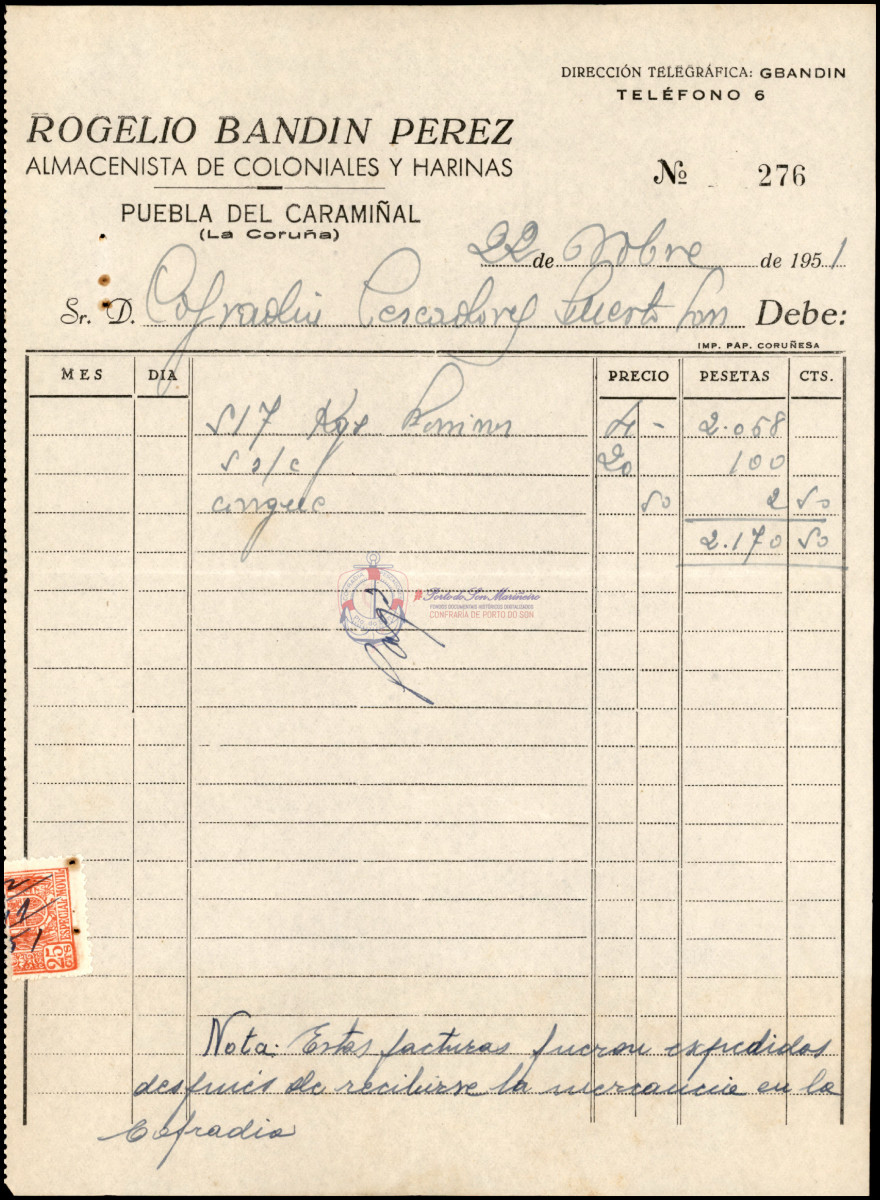 DIRECCIÓN TELEGRÁFICA: GBANDIN
TELÉFONO 6
ROGELIO BANDIN PEREZ
ALMACENISTA DE COLONIALES Y HARINAS
Nº 276
PUEBLA DEL CARAMIÑAL
(La Coruña)
22 de de 1951
Sr. D. Cofradia Pescadores Puerto Son Debe:
IMP. PAP. CORUÑESA
MES DIA PRECIO PESETAS CTS.
517 Kgs 4 - 2.068
5 s/c 20 100
50 2 50
2.170 50
Porto do Son Mariñeiro
FONDOS DOCUMENTAIS HISTÓRICOS DIXITALIZADOS
CONFRARÍA DE PORTO DO SON
ESPECIAL MOVIL
25 CTS
Nota: Estas facturas fueron expedidas
después de recibirse la mercancia en la
Cofradia